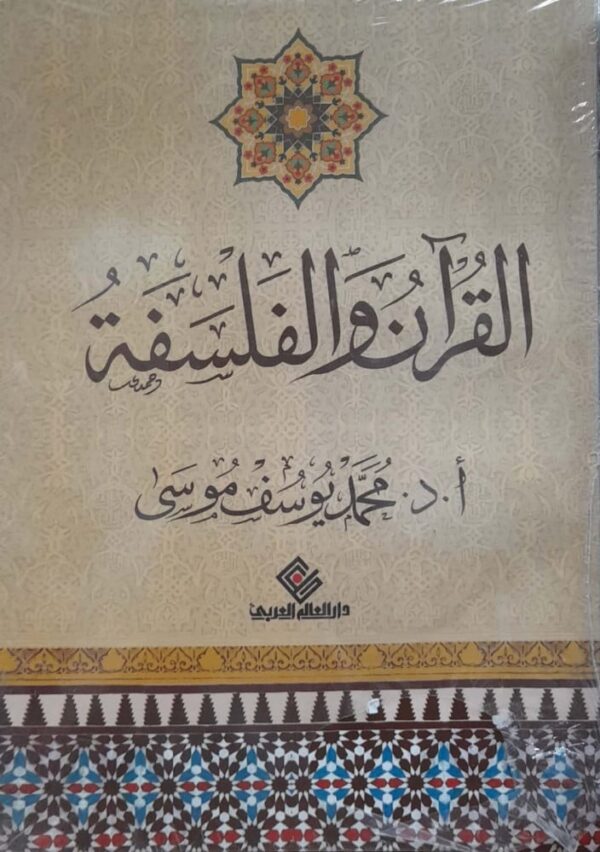 القُرآنُ وَالفَلسَفَةُ
أ.د. مُحَمَّد يُوسُف مُوسَى
دار العالم العربي